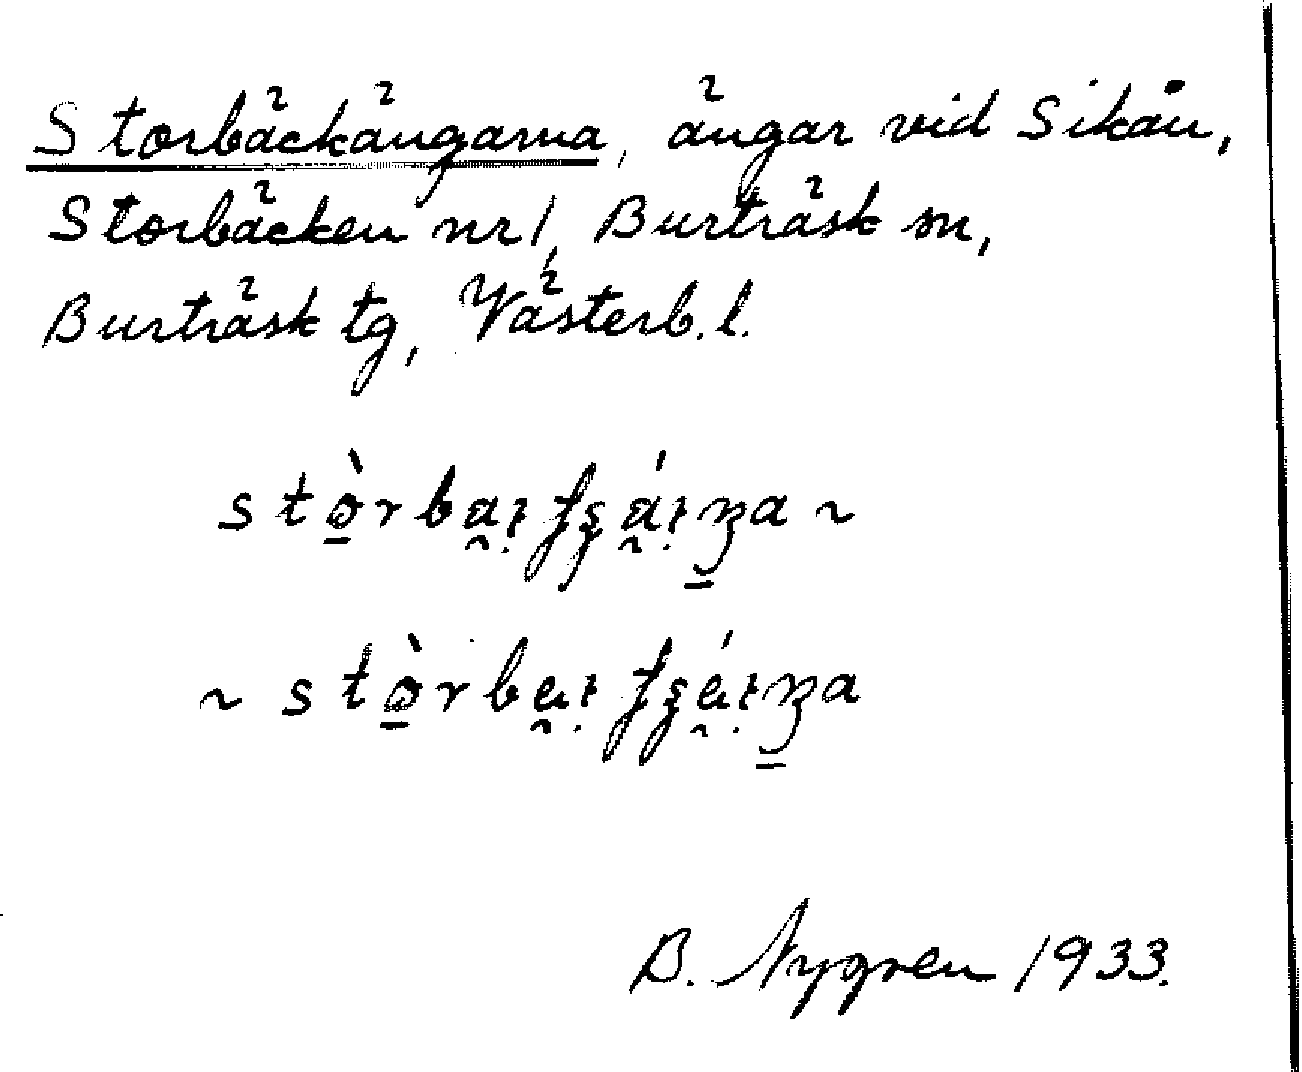 Storbäckängarna, ängar vid Sikån,
Storbäcken nr 1, Burträsk sn,
Burträsk tg, Västerb. l.
B. Nygren 1933.